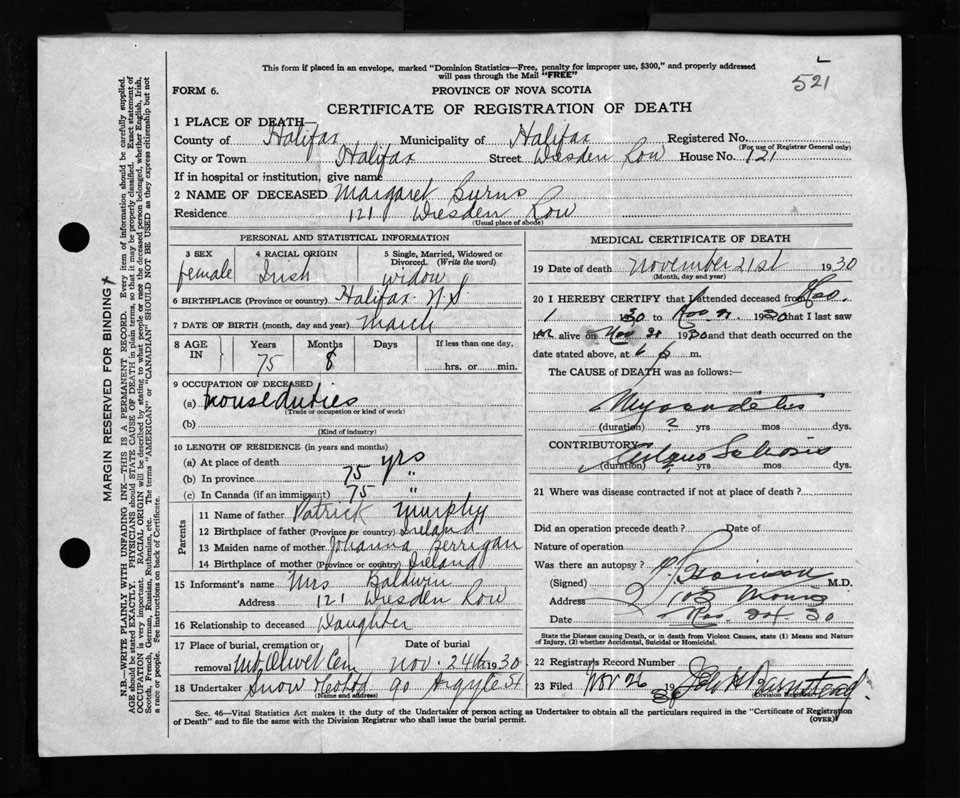 This form if placed in an envelope, marked "Dominion Statistics—Free, penalty for improper use, $300," and properly addressed
will pass through the Mail "FREE"
521
FORM 6.
PROVINCE OF NOVA SCOTIA
CERTIFICATE OF REGISTRATION OF DEATH
1 PLACE OF DEATH—
County of Halifax Municipality of Halifax Registered No.
(For use of Registrar General only)
City or Town Halifax Street Dresden Row House No. 121
If in hospital or institution, give name
2 NAME OF DECEASED Margaret Burns
Residence 121 Dresden Row
(Usual place of abode)
PERSONAL AND STATISTICAL INFORMATION
3 SEX female
4 RACIAL ORIGIN Irish
5 Single, Married, Widowed or Divorced. (Write the word) widow
6 BIRTHPLACE (Province or country) Halifax N.S.
7 DATE OF BIRTH (month, day and year) March
8 AGE IN Years 75 Months 8 Days If less than one day, hrs. or min.
9 OCCUPATION OF DECEASED
(a) Houseduties
(Trade or occupation or kind of work)
(b)
(Kind of industry)
10 LENGTH OF RESIDENCE (in years and months)
(a) At place of death 75 yrs
(b) In province 75 "
(c) In Canada (if an immigrant) 75 "
Parents
11 Name of father Patrick Murphy
12 Birthplace of father (Province or country) Ireland
13 Maiden name of mother Johanna Berrigan
14 Birthplace of mother (Province or country) Ireland
15 Informant's name Mrs Baldwin
Address 121 Dresden Row
16 Relationship to deceased Daughter
17 Place of burial, cremation or removal Mt. Olivet Cem Date of burial Nov. 24th 1930
18 Undertaker Snow 90 Argyle St
MEDICAL CERTIFICATE OF DEATH
19 Date of death November 21st 1930
(Month, day and year)
20 I HEREBY CERTIFY that I attended deceased from Nov.
1 1930 to Nov 1930 that I last saw
her alive on Nov 1930 and that death occurred on the
date stated above, at 6 p m.
The CAUSE of DEATH was as follows:—
Myocarditis
(duration) 2 yrs mos dys.
CONTRIBUTORY
(duration) yrs mos dys.
21 Where was disease contracted if not at place of death?
Did an operation precede death? Date of
Nature of operation
Was there an autopsy?
(Signed) M.D.
Address
Date Nov. 24. 30
State the Disease causing Death, or in death from Violent Causes, state (1) Means and Nature
of Injury, (2) whether Accidental, Suicidal or Homicidal.
22 Registrar's Record Number
23 Filed Nov 26 1930 John H Barnstead
Division Registrar
Sec. 46—Vital Statistics Act makes it the duty of the Undertaker or person acting as Undertaker to obtain all the particulars required in the "Certificate of Registration
of Death" and to file the same with the Division Registrar who shall issue the burial permit.
(OVER)
MARGIN RESERVED FOR BINDING
N.B.—WRITE PLAINLY WITH UNFADING INK—THIS IS A PERMANENT RECORD. Every item of information should be carefully supplied.
AGE should be stated EXACTLY. PHYSICIANS should STATE CAUSE OF DEATH in plain terms, so that it may be properly classified. Exact statement of
OCCUPATION is very important. RACIAL ORIGIN will be described by stating to what people or race the deceased person belonged, whether English, Irish,
Scotch, French, German, Russian, Ruthenian, etc. The terms "AMERICAN" or "CANADIAN" SHOULD NOT BE USED as they express citizenship but not
a race or people. See instructions on back of Certificate.